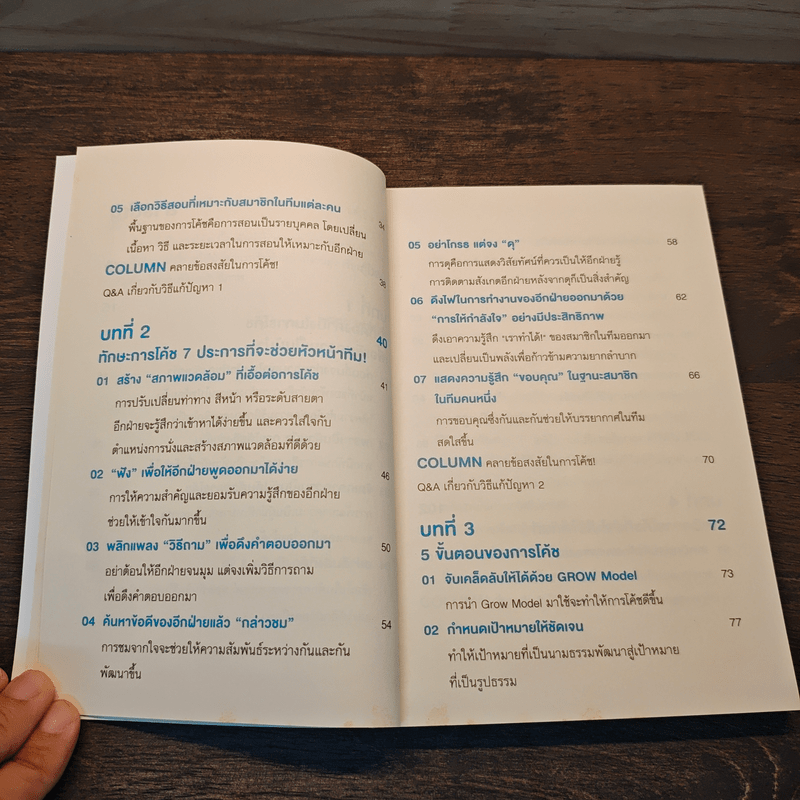 05 เลือกวิธีสอนที่เหมาะกับสมาชิกในทีมแต่ละคน 34
พื้นฐานของการโค้ชคือการสอนเป็นรายบุคคล โดยเปลี่ยน
เนื้อหา วิธี และระยะเวลาในการสอนให้เหมาะกับอีกฝ่าย
COLUMN คลายข้อสงสัยในการโค้ช! 38
Q&A เกี่ยวกับวิธีแก้ปัญหา 1
บทที่ 2 40
ทักษะการโค้ช 7 ประการที่จะช่วยหัวหน้าทีม!
01 สร้าง “สภาพแวดล้อม” ที่เอื้อต่อการโค้ช 41
การปรับเปลี่ยนท่าทาง สีหน้า หรือระดับสายตา
อีกฝ่ายจะรู้สึกว่าเข้าหาได้ง่ายขึ้น และควรใส่ใจกับ
ตำแหน่งการนั่งและสร้างสภาพแวดล้อมที่ดีด้วย
02 “ฟัง” เพื่อให้อีกฝ่ายพูดออกมาได้ง่าย 46
การให้ความสำคัญและยอมรับความรู้สึกของอีกฝ่าย
ช่วยให้เข้าใจกันมากขึ้น
03 พลิกแพลง “วิธีถาม” เพื่อดึงคำตอบออกมา 50
อย่าต้อนให้อีกฝ่ายจนมุม แต่จงเพิ่มวิธีการถาม
เพื่อดึงคำตอบออกมา
04 ค้นหาข้อดีของอีกฝ่ายแล้ว “กล่าวชม” 54
การชมจากใจจะช่วยให้ความสัมพันธ์ระหว่างกันและกัน
พัฒนาขึ้น
05 อย่าโกรธ แต่จง “ดุ” 58
การดุคือการแสดงวิสัยทัศน์ที่ควรเป็นให้อีกฝ่ายรู้
การติดตามสังเกตอีกฝ่ายหลังจากดุก็เป็นสิ่งสำคัญ
06 ดึงไฟในการทำงานของอีกฝ่ายออกมาด้วย 62
“การให้กำลังใจ” อย่างมีประสิทธิภาพ
ดึงเอาความรู้สึก ‘เราทำได้!’ ของสมาชิกในทีมออกมา
และเปลี่ยนเป็นพลังเพื่อก้าวข้ามความยากลำบาก
07 แสดงความรู้สึก “ขอบคุณ” ในฐานะสมาชิก 66
ในทีมคนหนึ่ง
การขอบคุณซึ่งกันและกันช่วยให้บรรยากาศในทีม
สดใสขึ้น
COLUMN คลายข้อสงสัยในการโค้ช! 70
Q&A เกี่ยวกับวิธีแก้ปัญหา 2
บทที่ 3 72
5 ขั้นตอนของการโค้ช
01 จับเคล็ดลับให้ได้ด้วย GROW Model 73
การนำ Grow Model มาใช้จะทำให้การโค้ชดีขึ้น
02 กำหนดเป้าหมายให้ชัดเจน 77
ทำให้เป้าหมายที่เป็นนามธรรมพัฒนาสู่เป้าหมาย
ที่เป็นรูปธรรม